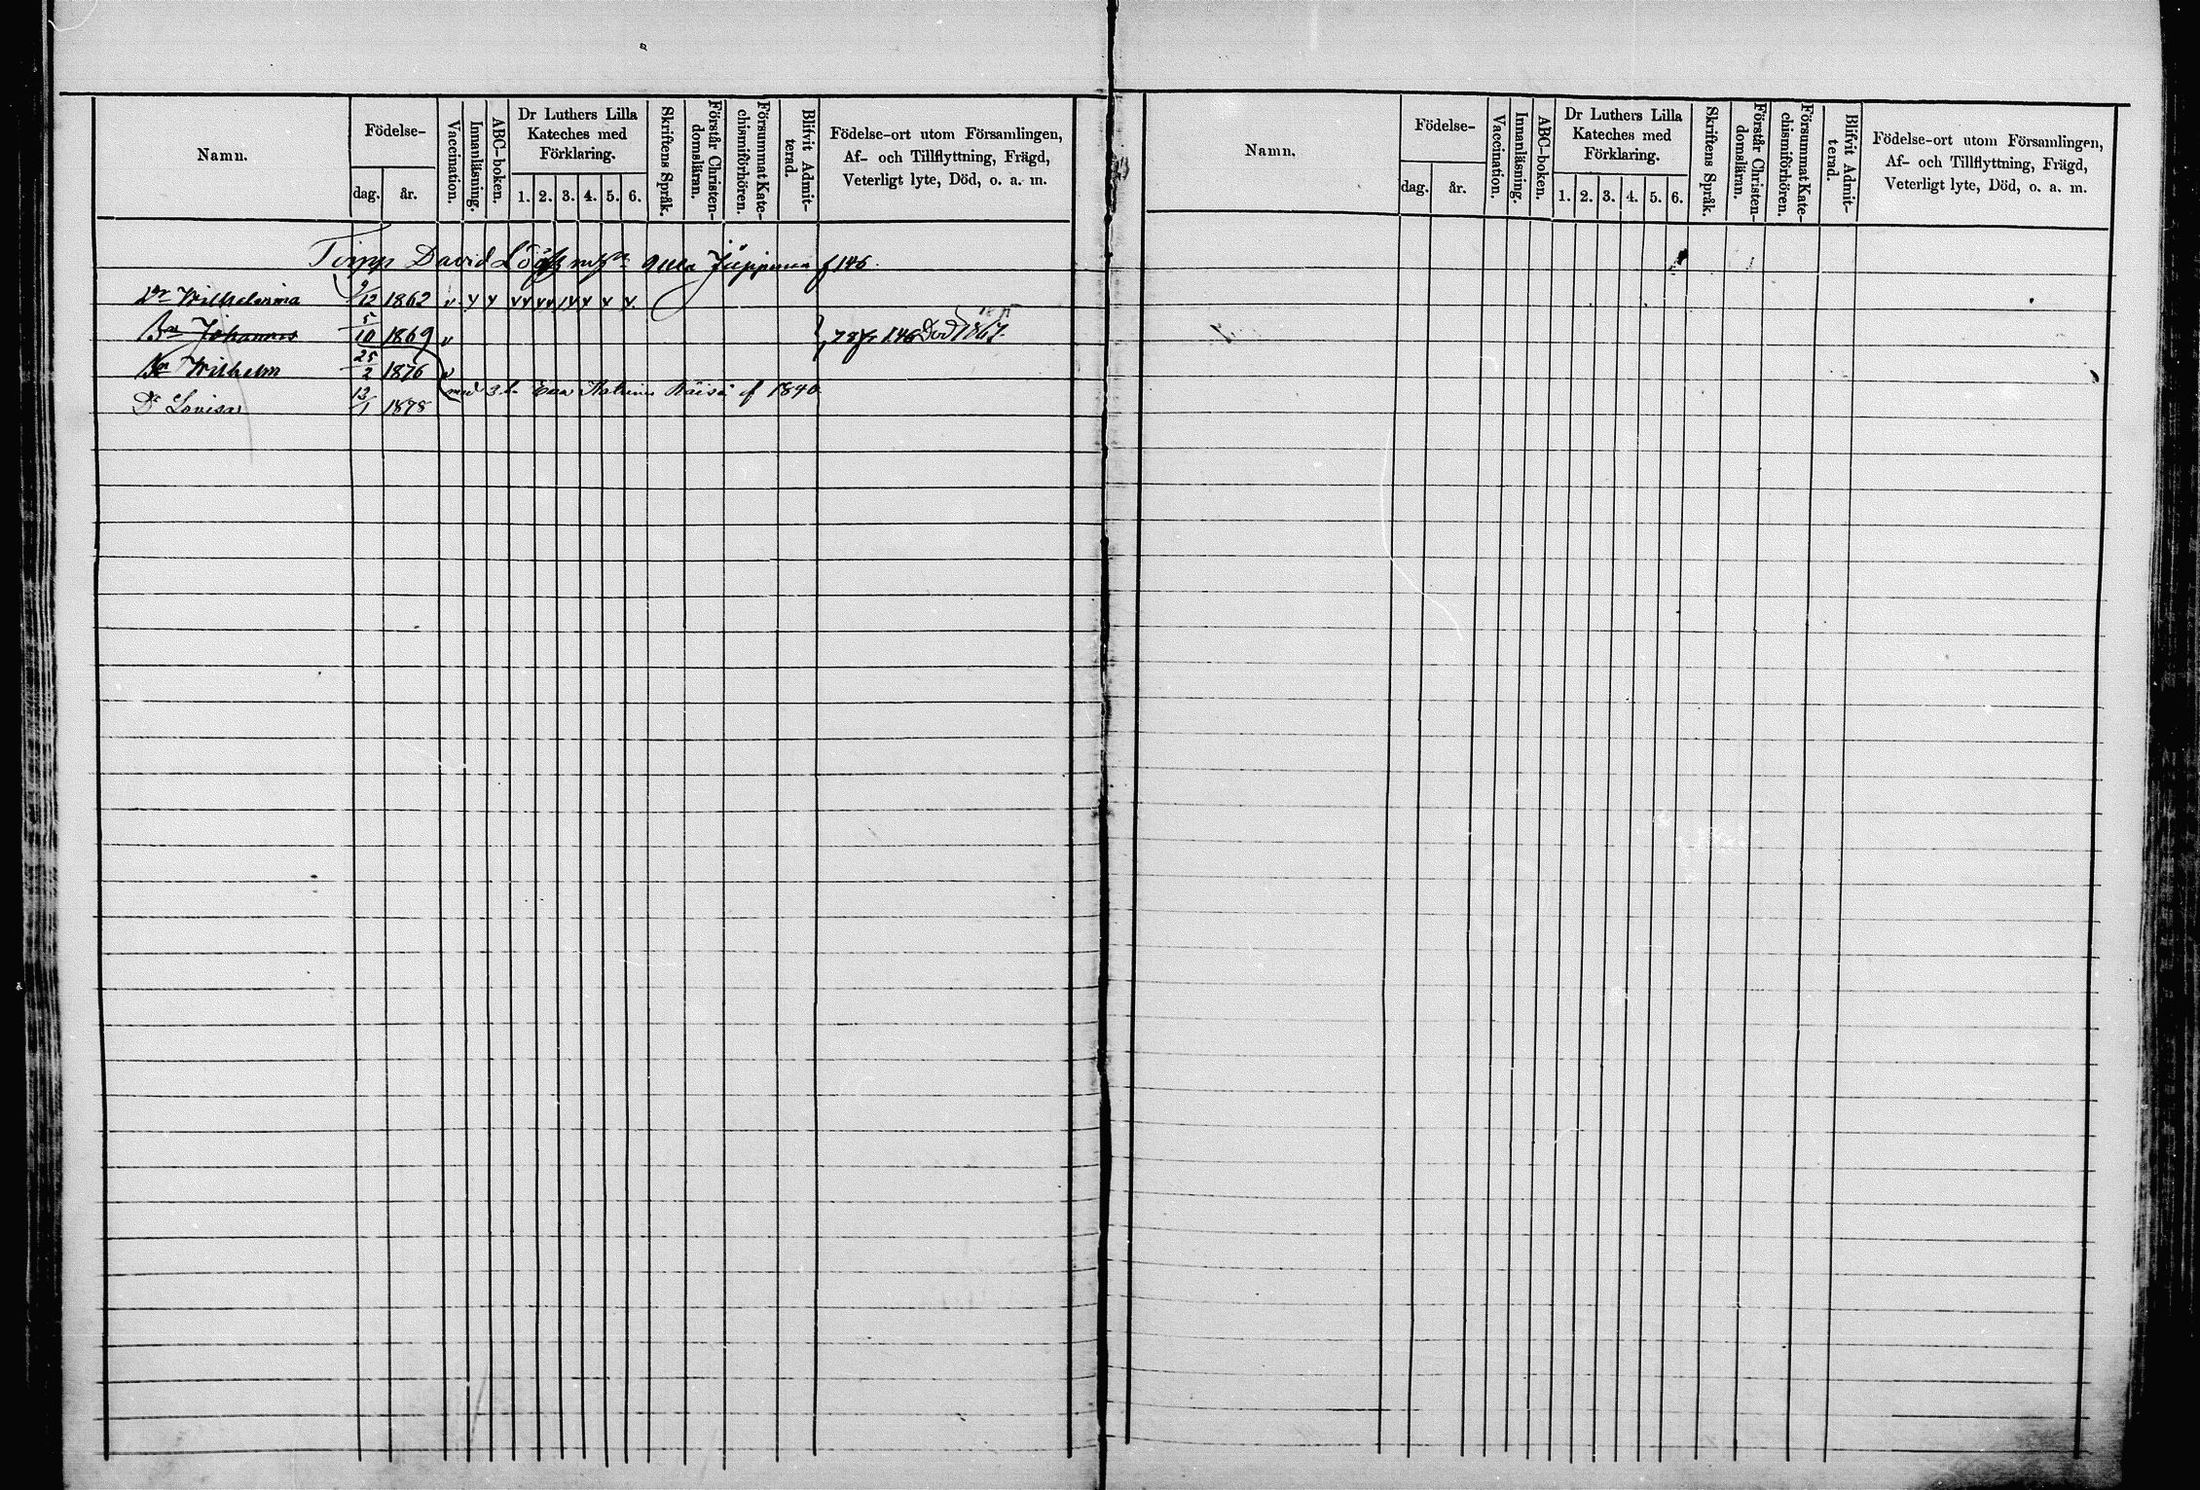 Namn.
Födelse-
dag. år.
Vaccination.
Innanläsning.
ABC-boken.
Dr Luthers Lilla
Kateches med
Förklaring.
1. 2. 3. 4. 5. 6.
Skriftens Språk.
Förstår Christen-
domsläran.
Försummat Kate-
chismiförhören.
Blifvit Admit-
terad.
Födelse-ort utom Församlingen,
Af- och Tillflyttning, Frägd,
Veterligt lyte, Död, o. a. m.
Timm David Ulla f 146.
Dr Wilhelmina 9/12 1862 v v v v v v v v v v v v
Sn Johannes 5/10 1869 v 146 Död
Sn Wilhelm 25/2 1876 v
med 3 h. Eva f 1840
Dr Lovisa 13/1 1878
Namn.
Födelse-
dag. år.
Vaccination.
Innanläsning.
ABC-boken.
Dr Luthers Lilla
Kateches med
Förklaring.
1. 2. 3. 4. 5. 6.
Skriftens Språk.
Förstår Christen-
domsläran.
Försummat Kate-
chismiförhören.
Blifvit Admit-
terad.
Födelse-ort utom Församlingen,
Af- och Tillflyttning, Frägd,
Veterligt lyte, Död, o. a. m.